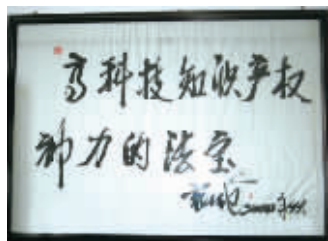 高科技知识产权
神力的法宝